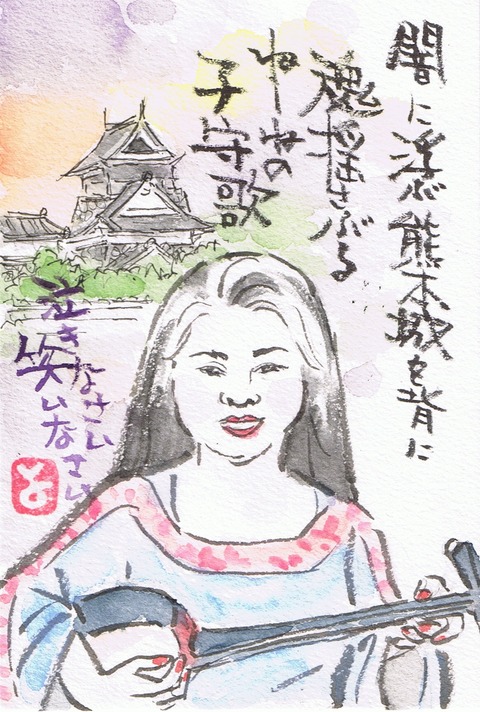 闇に浮ぶ熊本城を背に
魂揺さぶる
の
子守歌
泣きなさい
笑いなさい